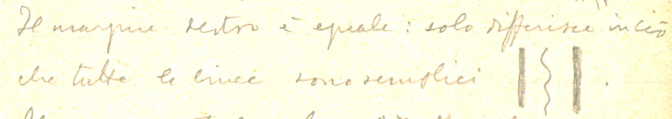 Il margine destro è eguale: solo differisce in ciò
che tutte le linee sono semplici .